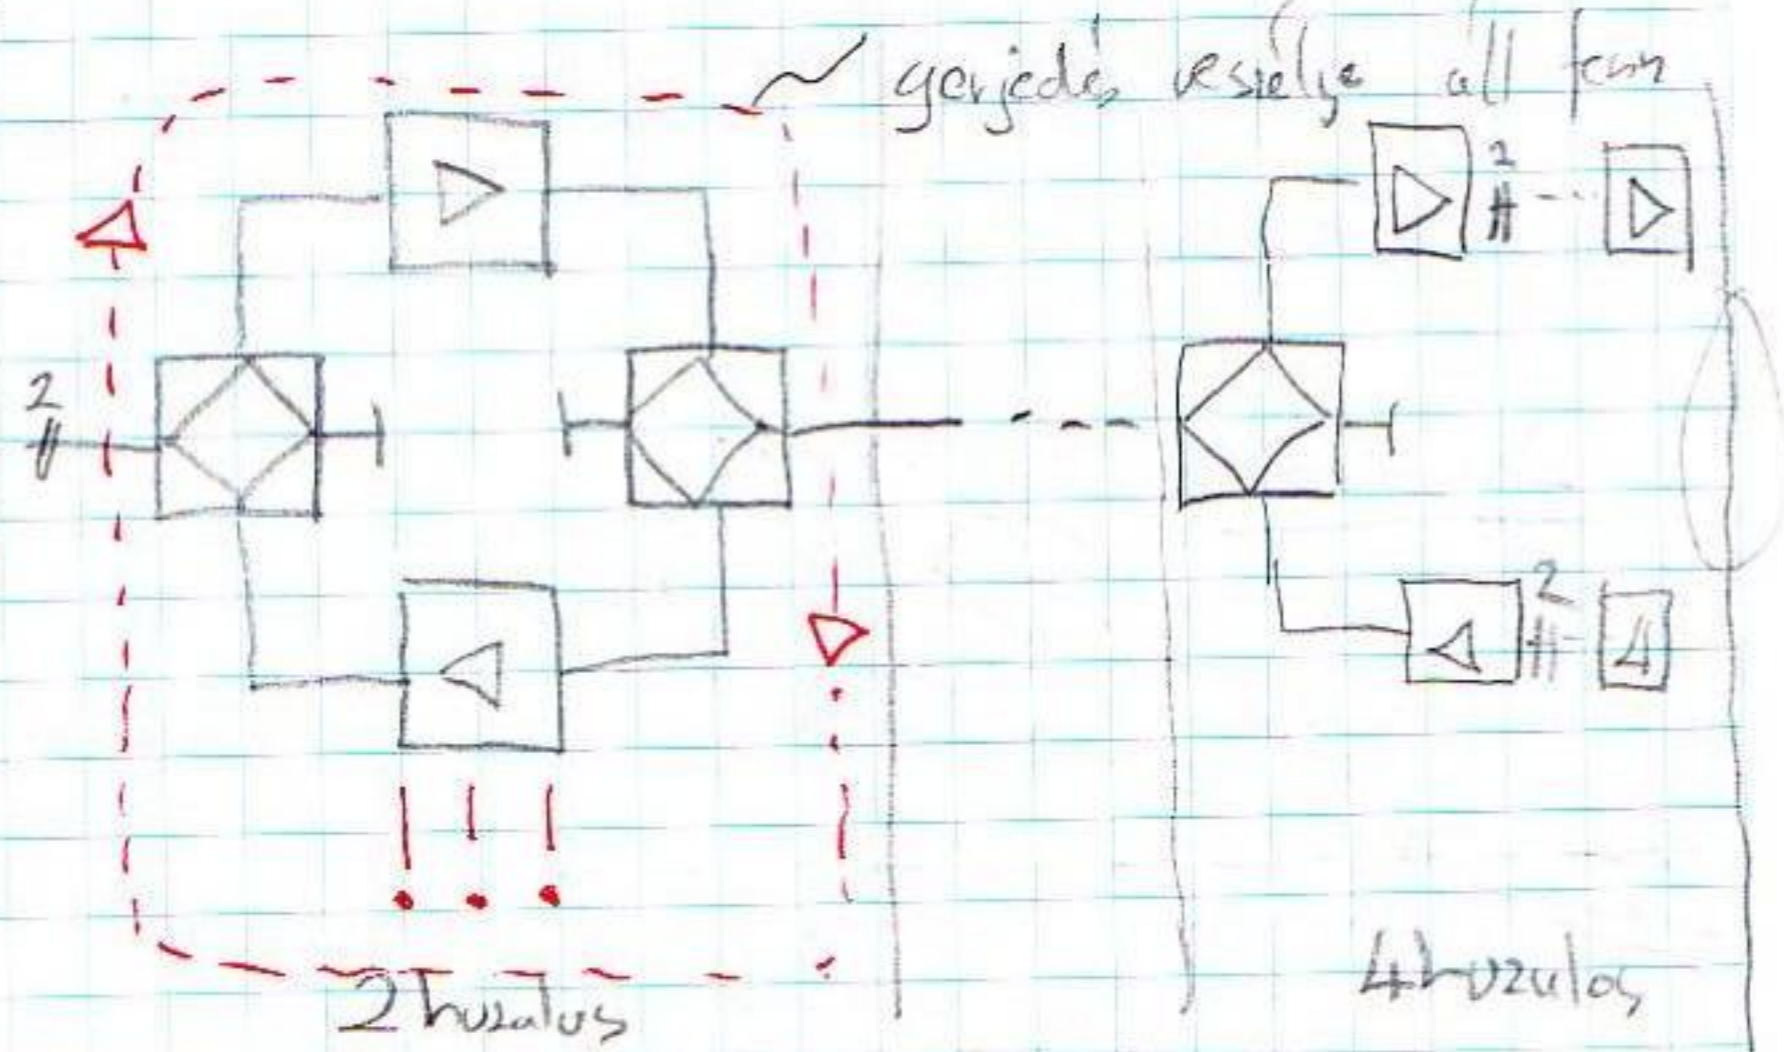 gerjedés veszélye áll fenn
2
2
2
!!!
2 huzalos
4 huzalos